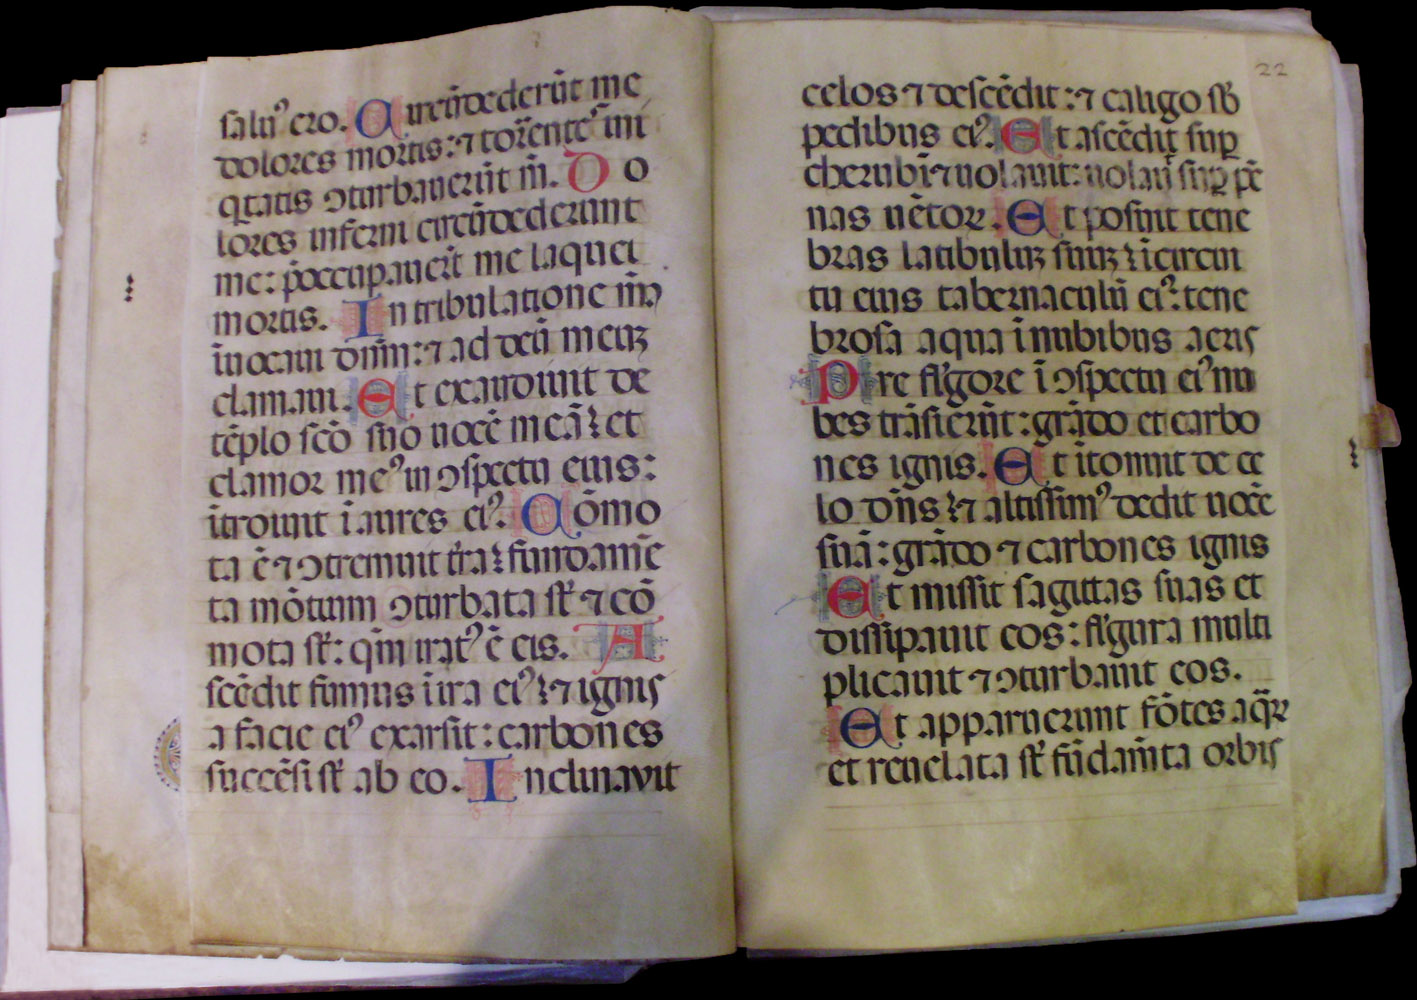 saluꝰ ero. Circūdederūt me
dolores mortis: ⁊ torrentes ini
q̄tatis ↄturbauerūt m̄. Do
lores inferni circūdederunt
me: p̄occupauerūt me laquei
mortis. In tribulatione m̄
īuocaui dn̄m: ⁊ ad deū meuꝫ
clamaui. Et exaudiuit de
tēplo scō suo uocē meā: et
clamor meꝰ in ↄspectu eius:
ītrouit ī aures eiꝰ. Cōmo
ta ē ⁊ ↄtremuit tr̄a: fundamē
ta mōtium ↄturbata st̄ ⁊ cō
mota st̄: qm̄ iratꝰ ē eis. A
scēdit fumus ī ira eiꝰ: ⁊ ignis
a facie eiꝰ exarsit: carbones
succēsi st̄ ab eo. Inclinavit
22
celos ⁊ descēdit: ⁊ caligo sb̄
pedibus eiꝰ. Et ascēdit sup̄
cherubī ⁊ uolauit: uolauit sup̄ pē
nas uētoꝝ. Et posuit tene
bras latibuluꝫ suuꝫ: ī circui
tu eius tabernaculū eiꝰ: tene
brosa aqua ī nubibus aeris
Pre fl̄gore ī ↄspectu eiꝰ nu
bes trāsierūt: grādo et carbo
nes ignis. Et ītonuit de ce
lo dn̄s: ⁊ altissimꝰ dedit uocē
suā: grādo ⁊ carbones ignis
Et missit sagittas suas et
dissipauit eos: fl̄gura multi
plicauit ⁊ ↄturbauit eos.
Et apparuerunt fōtes aq̄ꝝ
et reuelata st̄ fūdam̄ta orbis